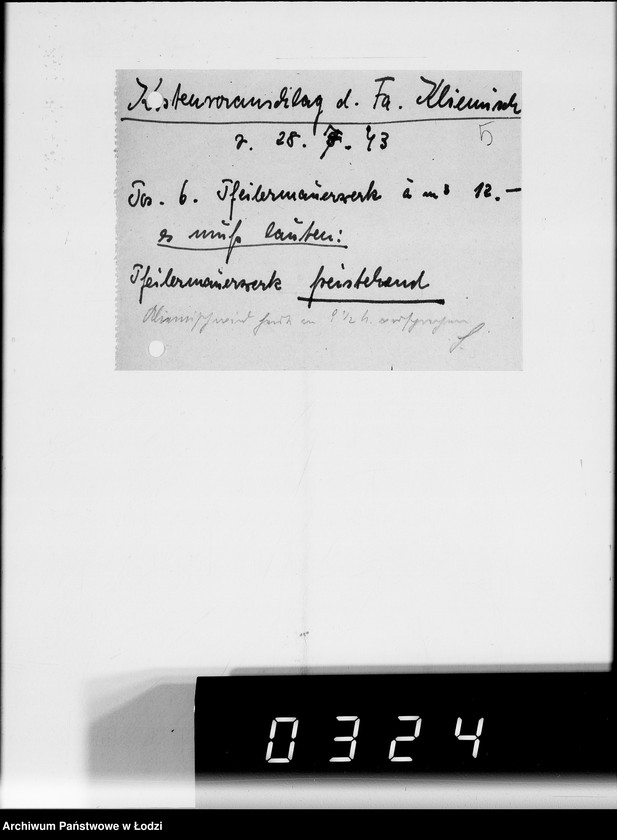 Kostenvoranschlag d. Fa. Kliemisch
5
v. 28. 7. 43
Pos. 6. Pfeilermauerwerk à m³ 12.–
es muß lauten:
Pfeilermauerwerk freistehend
Kliemisch wird 9 1/2 h. vorsprechen
0324
Archiwum Państwowe w Łodzi